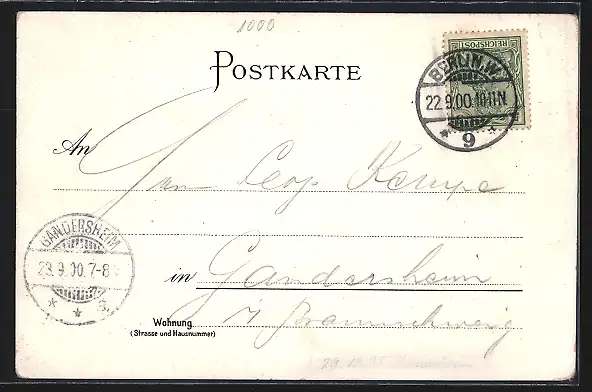 1000
POSTKARTE
REICHSPOST
BERLIN.W.
22.9.00.10-11N.
* 9 *
An
Herrn Leop Kempe
GANDERSHEIM
23.9.00.7-8
in Gandersheim
i/Braunschweig
Wohnung
(Strasse und Hausnummer)